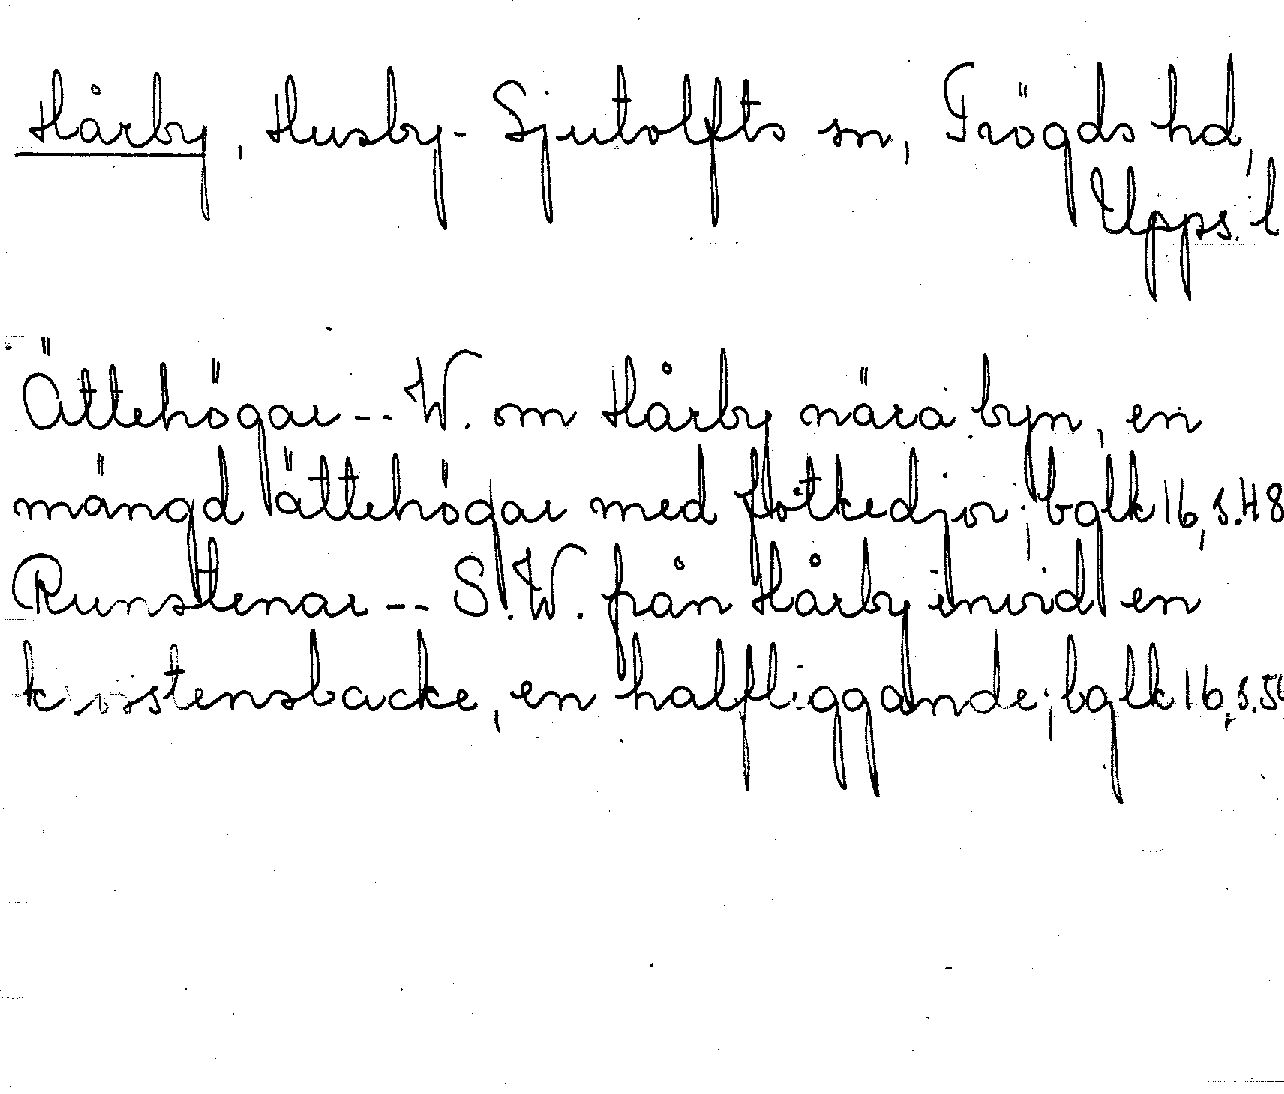 Hårby, Husby-Sjutolfts sn, Trögds hd,
Upps. l
Ättehögar -- W. om Hårby nära byn, en
mängd ättehögar med fotkedjor; bglk 16, s. 48
Runstenar -- S.W. från Hårby invid en
kvistensbacke, en halfliggande; bglk 16, s. 5